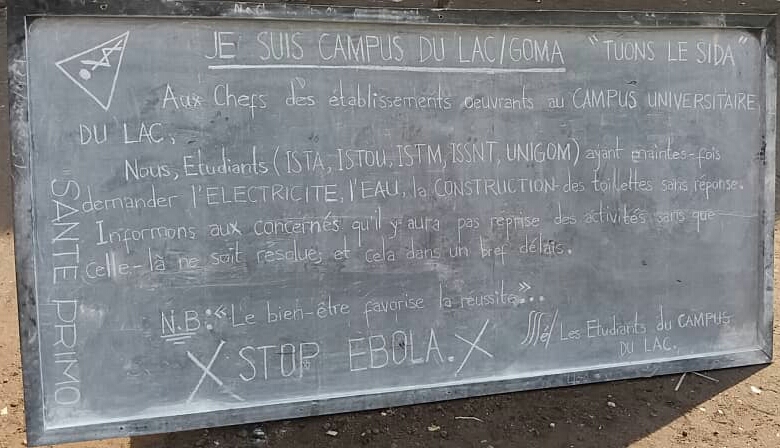 JE SUIS CAMPUS DU LAC/GOMA "TUONS LE SIDA"
Aux Chefs des établissements oeuvrants au CAMPUS UNIVERSITAIRE
DU LAC,
Nous, Etudiants (ISTA, ISTOU, ISTM, ISSNT, UNIGOM) ayant maintes-fois
demander l'ELECTRICITE, l'EAU, la CONSTRUCTION des toillettes sans réponse.
Informons aux concernés qu'il y aura pas reprise des activités sans que
celle-là ne soit resolue, et cela dans un bref délais.
N.B: "Le bien-être favorise la réussite"..
Les Etudiants du CAMPUS
DU LAC.
X STOP EBOLA. X
"SANTE PRIMO